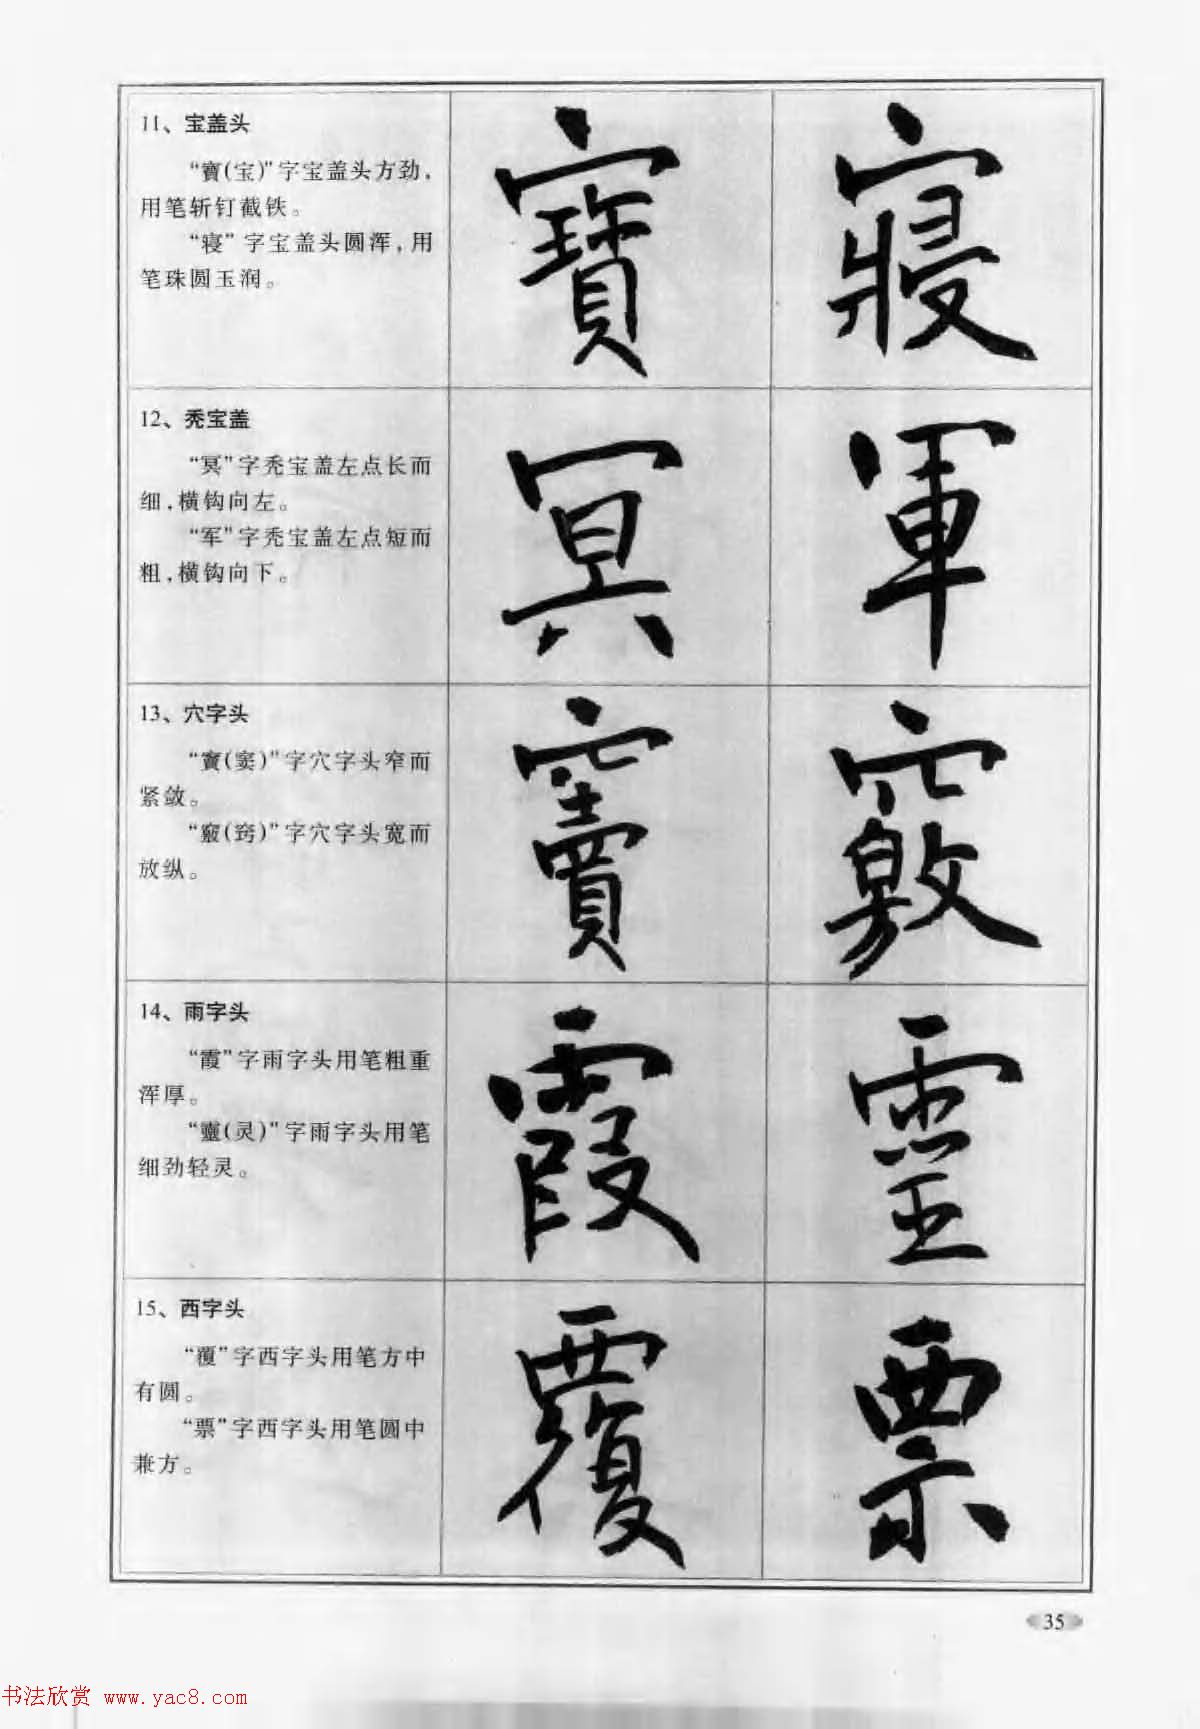 11、宝盖头
“寶(宝)”字宝盖头方劲,
用笔斩钉截铁。
“寝”字宝盖头圆浑,用
笔珠圆玉润。
寶 寢
12、秃宝盖
“冥”字秃宝盖左点长而
细,横钩向左。
“军”字秃宝盖左点短而
粗,横钩向下。
冥 軍
13、穴字头
“竇(窦)”字穴字头窄而
紧敛。
“竅(窍)”字穴字头宽而
放纵。
竇 竅
14、雨字头
“霞”字雨字头用笔粗重
浑厚。
“靈(灵)”字雨字头用笔
细劲轻灵。
霞 靈
15、西字头
“覆”字西字头用笔方中
有圆。
“票”字西字头用笔圆中
兼方。
覆 票
35
书法欣赏 www.yac8.com